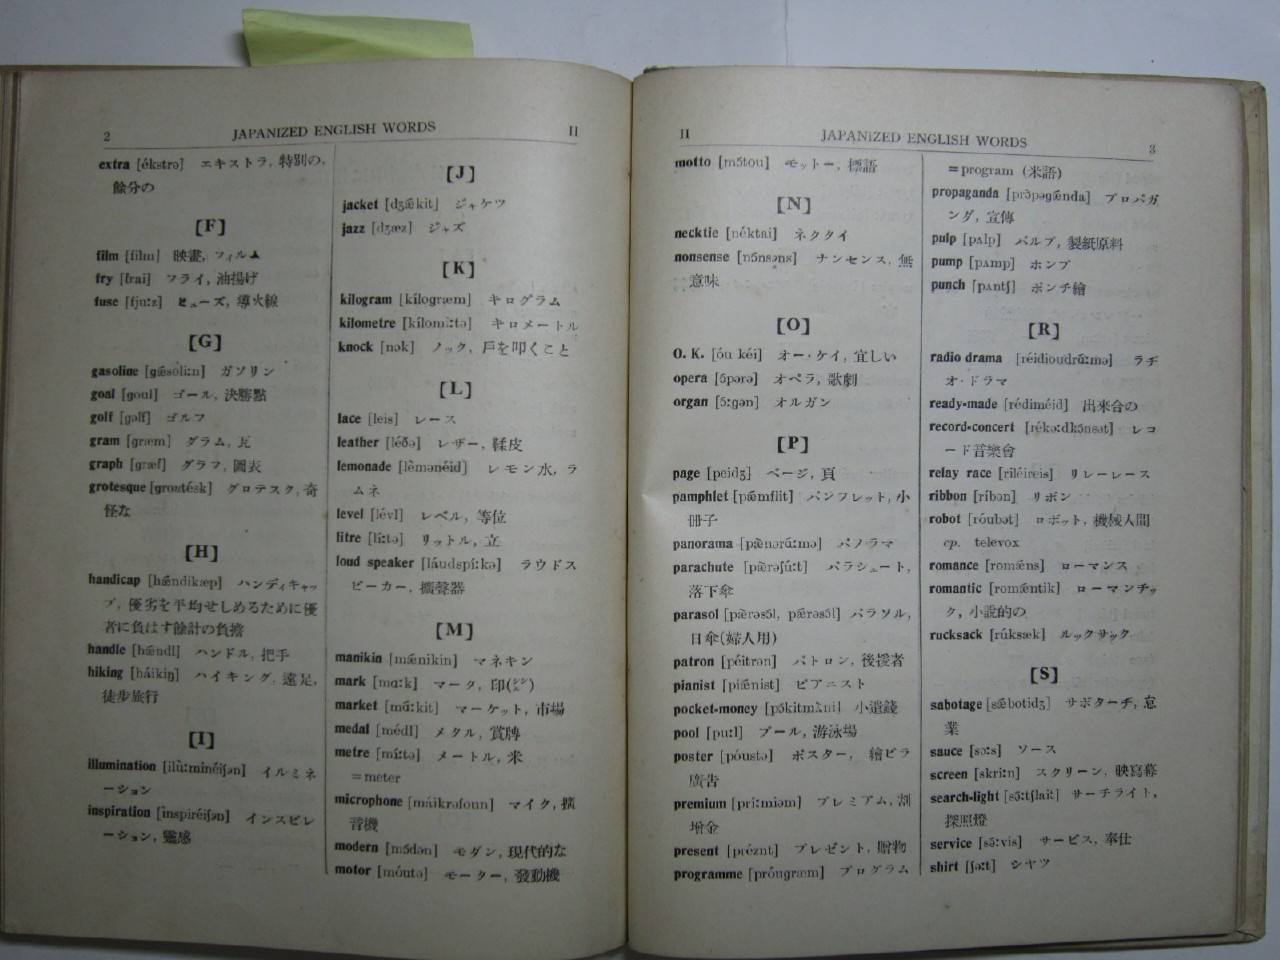 2 JAPANIZED ENGLISH WORDS II
extra [ékstrə] エキストラ, 特別の,
餘分の
[F]
film [film] 映畫, フィルム
fry [frai] フライ, 油揚げ
fuse [fju:z] ヒューズ, 導火線
[G]
gasoline [gǽsoli:n] ガソリン
goal [goul] ゴール, 決勝點
golf [gɔlf] ゴルフ
gram [græm] グラム, 瓦
graph [græf] グラフ, 圖表
grotesque [groutésk] グロテスク, 奇
怪な
[H]
handicap [hǽndikæp] ハンディキャッ
プ, 優劣を平均せしめるために優
者に負はす餘計の負擔
handle [hǽndl] ハンドル, 把手
hiking [háikiŋ] ハイキング, 遠足,
徒歩旅行
[I]
illumination [ilù:minéiʃən] イルミネ
ーション
inspiration [inspiréiʃən] インスピレ
ーション, 靈感
[J]
jacket [dʒǽkit] ジャケツ
jazz [dʒæz] ジャズ
[K]
kilogram [kílogræm] キログラム
kilometre [kílomì:tə] キロメートル
knock [nɔk] ノック, 戸を叩くこと
[L]
lace [leis] レース
leather [léðə] レザー, 鞣皮
lemonade [lèmənéid] レモン水, ラ
ムネ
level [lévl] レベル, 等位
litre [lí:tə] リットル, 立
loud speaker [láudspí:kə] ラウドス
ピーカー, 擴聲器
[M]
manikin [mǽnikin] マネキン
mark [mɑ:k] マーク, 印
market [mɑ́:kit] マーケット, 市場
medal [médl] メタル, 賞牌
metre [mí:tə] メートル, 米
=meter
microphone [máikrəfoun] マイク, 擴
音機
modern [mɔ́dən] モダン, 現代的な
motor [móutə] モーター, 發動機
II JAPANIZED ENGLISH WORDS 3
motto [mɔ́tou] モットー, 標語
[N]
necktie [néktai] ネクタイ
nonsense [nɔ́nsəns] ナンセンス, 無
意味
[O]
O. K. [óu kéi] オー・ケイ, 宜しい
opera [ɔ́pərə] オペラ, 歌劇
organ [ɔ́:gən] オルガン
[P]
page [peidʒ] ページ, 頁
pamphlet [pǽmflit] パンフレット, 小
冊子
panorama [pæ̀nərɑ́:mə] パノラマ
parachute [pǽrəʃú:t] パラシュート,
落下傘
parasol [pæ̀rəsɔ́l, pǽrəsɔ̀l] パラソル,
日傘(婦人用)
patron [péitrən] パトロン, 後援者
pianist [piǽnist] ピアニスト
pocket-money [pɔ́kitmʌ̀ni] 小遣錢
pool [pu:l] プール, 游泳場
poster [póustə] ポスター, 繪ビラ
廣告
premium [prí:miəm] プレミアム, 割
增金
present [préznt] プレゼント, 贈物
programme [próugræm] プログラム
=program (米語)
propaganda [prɔ̀pəgǽndə] プロパガ
ンダ, 宣傳
pulp [pʌlp] パルプ, 製紙原料
pump [pʌmp] ポンプ
punch [pʌntʃ] ポンチ繪
[R]
radio drama [réidioudrɑ́:mə] ラヂ
オ・ドラマ
ready-made [rédiméid] 出來合の
record-concert [rékə:dkɔ́nsət] レコ
ード音樂會
relay race [riléireis] リレーレース
ribbon [ríbən] リボン
robot [róubət] ロボット, 機械人間
cp. televox
romance [romǽns] ローマンス
romantic [romǽntik] ローマンチッ
ク, 小說的の
rucksack [rúksæk] ルックサック
[S]
sabotage [sǽbotidʒ] サボターヂ, 怠
業
sauce [sɔ:s] ソース
screen [skri:n] スクリーン, 映寫幕
search-light [sə́:tʃlait] サーチライト,
探照燈
service [sə́:vis] サービス, 奉仕
shirt [ʃə:t] シヤツ